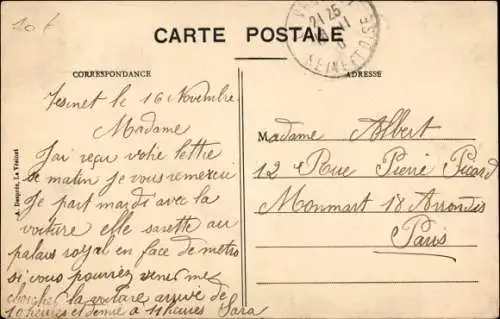 10 f
CARTE POSTALE
21 25
SEINE ET OISE
CORRESPONDANCE
ADRESSE
Vesinet le 16 Novembre
Madame
J'ai reçu votre lettre
se matin je vous remerci
Je part mardi avec la
voiture elle sarette au
palais royal en face de metro
si vous pourriez vener me
chercher la voiture arrivé de
10 heures et demie a 11 heures Sara
Madame Albert
12 Rue Pierre Picard
Monmart 18 Arrondis
Paris
A. Desprée, Le Vésinet